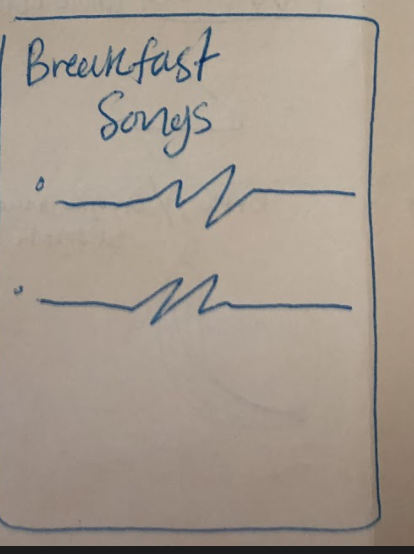 Breakfast
Songs